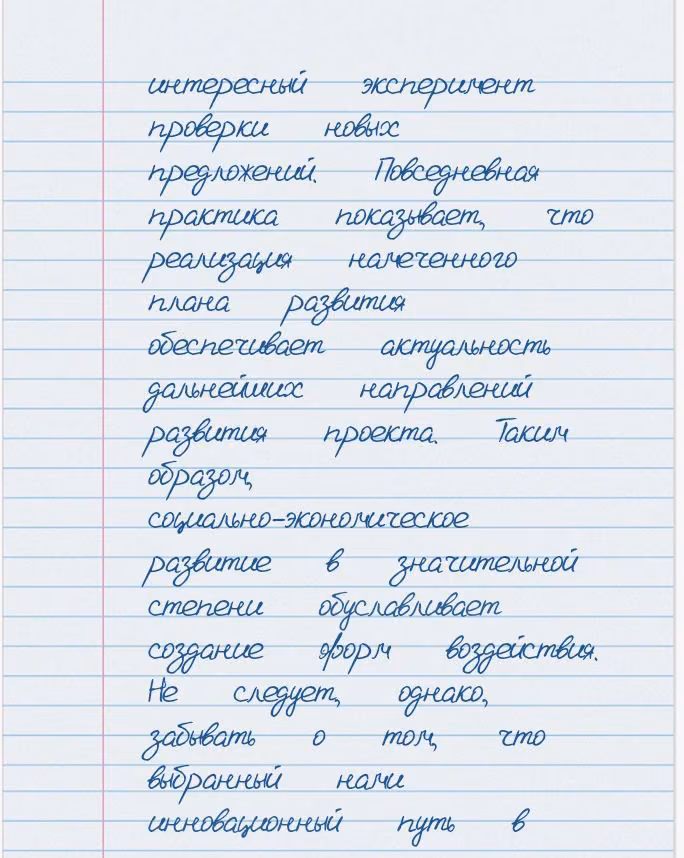 интересный эксперимент
проверки новых
предложений. Повседневная
практика показывает, что
реализация намеченного
плана развития
обеспечивает актуальность
дальнейших направлений
развития проекта. Таким
образом,
социально-экономическое
развитие в значительной
степени обуславливает
создание форм воздействия.
Не следует, однако,
забывать о том, что
выбранный нами
инновационный путь в